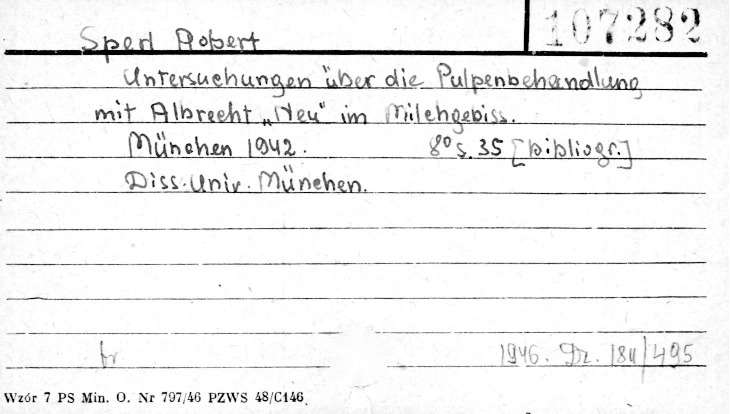 107282
Sperl Robert
Untersuchungen über die Pulpenbehandlung
mit Albrecht „Neu" im Milchgebiss.
München 1942. 8° s. 35 [bibliogr.]
Diss. Univ. München.
1946. Dz. 184/495
Wzór 7 PS Min. O. Nr 797/46 PZWS 48/C146.